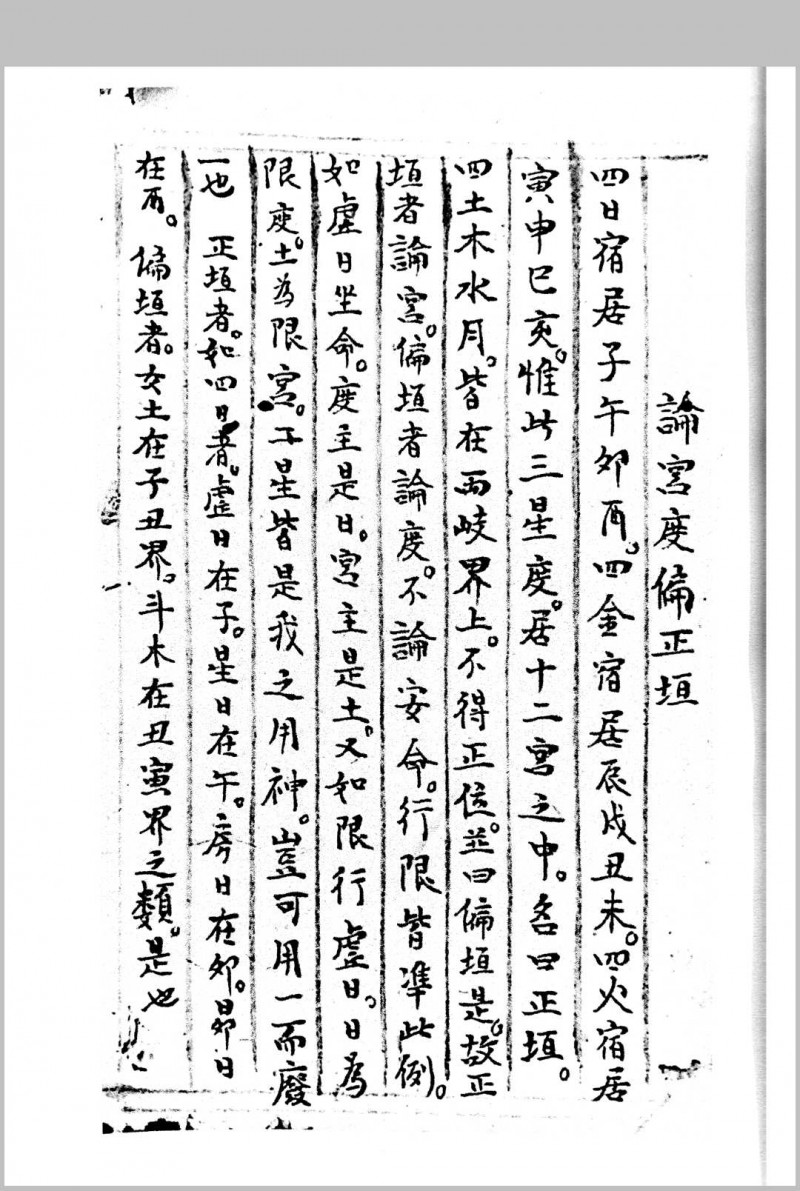 論宮度偏正垣
四日宿居子午卯酉。四金宿居辰戌丑未。四火宿居
寅申巳亥。惟此三星度。居十二宮之中。名曰正垣。
四土木水月。皆在兩岐界上。不得正位。並曰偏垣是。故正
垣者論宮。偏垣者論度。不論安命。行限皆準此例。
如虛日坐命。度主是日。宮主是土。又如限行虛日。日為
限度。土為限宮。二星皆是我之用神。豈可用一而廢
一也 正垣者。如四日者。虛日在子。星日在午。房日在卯。昴日
在酉。偏垣者。女土在子丑界。斗木在丑寅界之類。是也